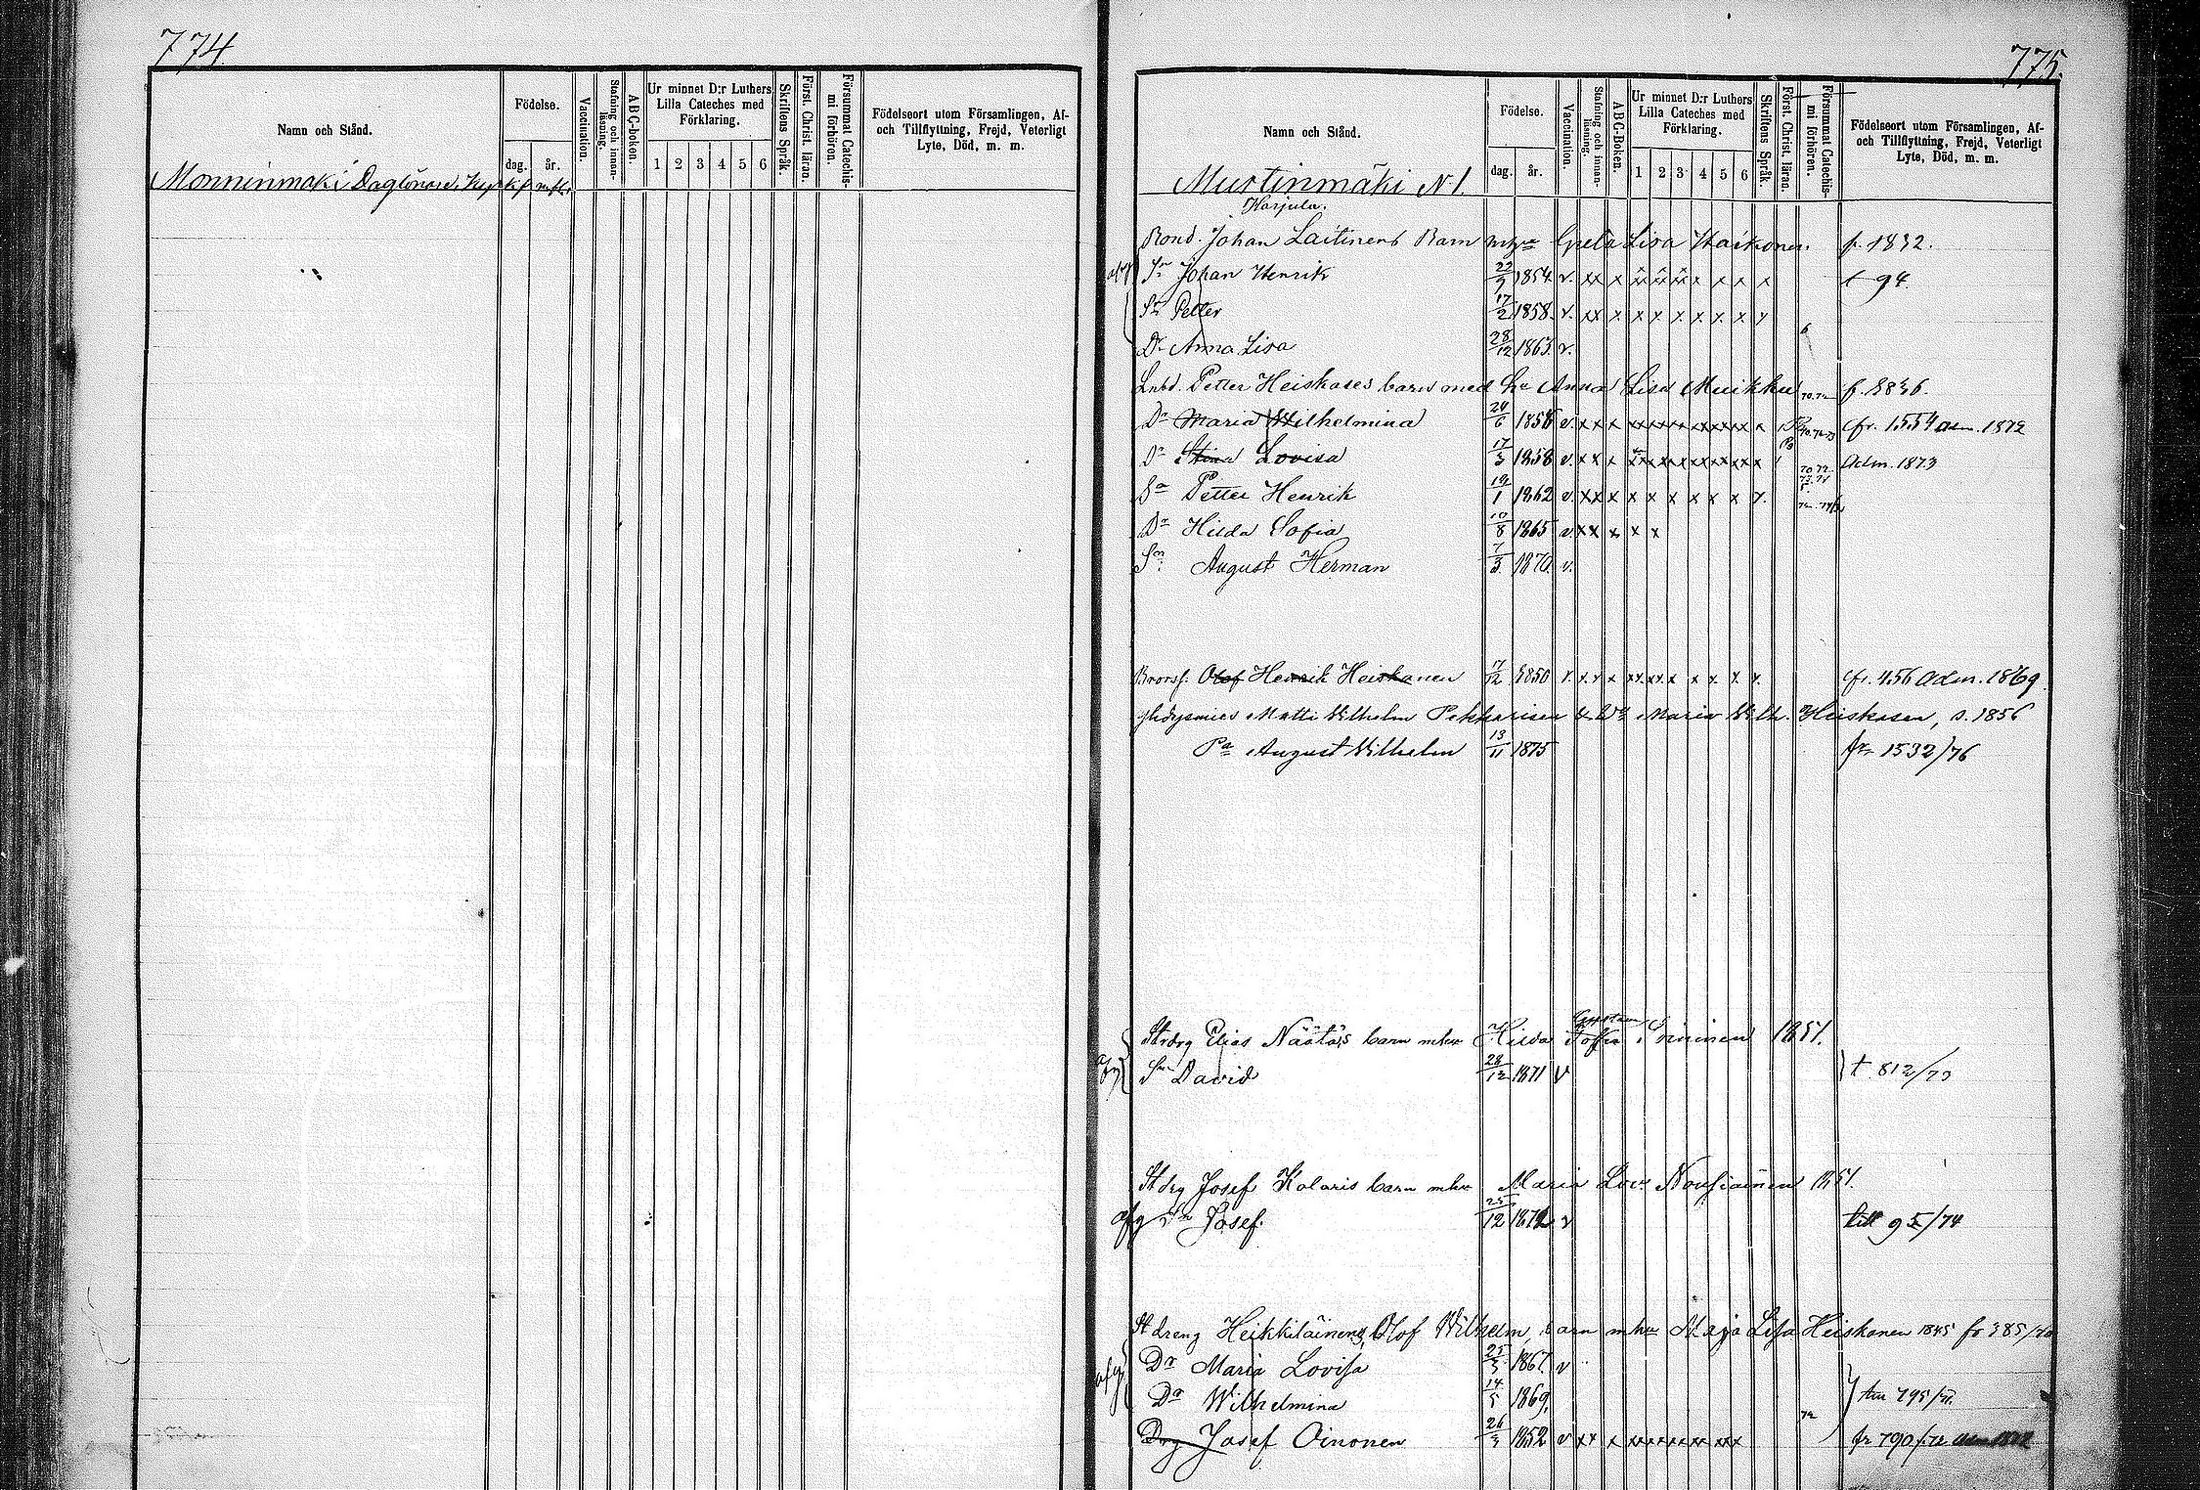 774.
Namn och Stånd.
Födelse.
dag.
år.
Vaccination.
Stafning och innan-läsning.
ABC-boken.
Ur minnet D:r Luthers Lilla Cateches med Förklaring.
1 2 3 4 5 6
Skriftens Språk.
Först. Christ. läran.
Försummat Catechis-mi förhören.
Födelseort utom Församlingen, Af- och Tillflyttning, Frejd, Veterligt Lyte, Död, m. m.
Monninmäki
775.
Namn och Stånd.
Födelse.
dag.
år.
Vaccination.
Stafning och innan-läsning.
ABC-Boken.
Ur minnet D:r Luthers Lilla Cateches med Förklaring.
1 2 3 4 5 6
Skriftens Språk.
Först. Christ. läran.
Försummat Catechis-mi förhören.
Födelseort utom Församlingen, Af- och Tillflyttning, Frejd, Veterligt Lyte, Död, m. m.
Murtinmäki N 1.
Harjula.
Bond. Johan Laitinens Barn Greta Lisa f. 1832.
afg Sn Johan Henrik 1854 v. xx x x x x x t 94
Sn Petter 17/2 1858 v. xx x x x x x x x
Dr Anna Lisa 28/12 1863 v.
Petter Heiskases barn med Anna Lisa Muikku f. 1836.
Dr Maria Wilhelmina 24/6 1856 v. x x x cfr. 1554 adm. 1872
Dr Stina Lovisa 17/3 1858 v. x x x adm. 1873
Petter Henrik 19/1 1862 v. xx x x x x x x x
Dr Hilda Sofia 10/8 1865 v. xx x x x
Sn August Herman 7/3 1870 v.
Olof Henrik Heiskanen 17/12 1850 v. x x x cfr. 456 adm. 1869
Matti Vilhelm Pekkarisen Maria Vilh. Heiskasen, s. 1856
August Vilhelm 13/11 1875 fr 1532/76
Elias Näätäs barn mhu Hilda 1851.
afg Sn David 28/12 1871 v t. 812/73
St drg Josef Kolaris barn mhu Maria Lov. Nousiainen 1851.
afg Sn Josef. 25/12 1872 v till 95/74
St dreng Heikkiläinens, Olof Wilhelm, barn mhu Maja Lisa Heiskanen 1845 fr 385/70
afg Dr Maria Lovisa 25/3 1867 v
Dr Wilhelmina 14/5 1869.
Drg Josef Oinonen 26/3 1852 v xx x fr 790/72